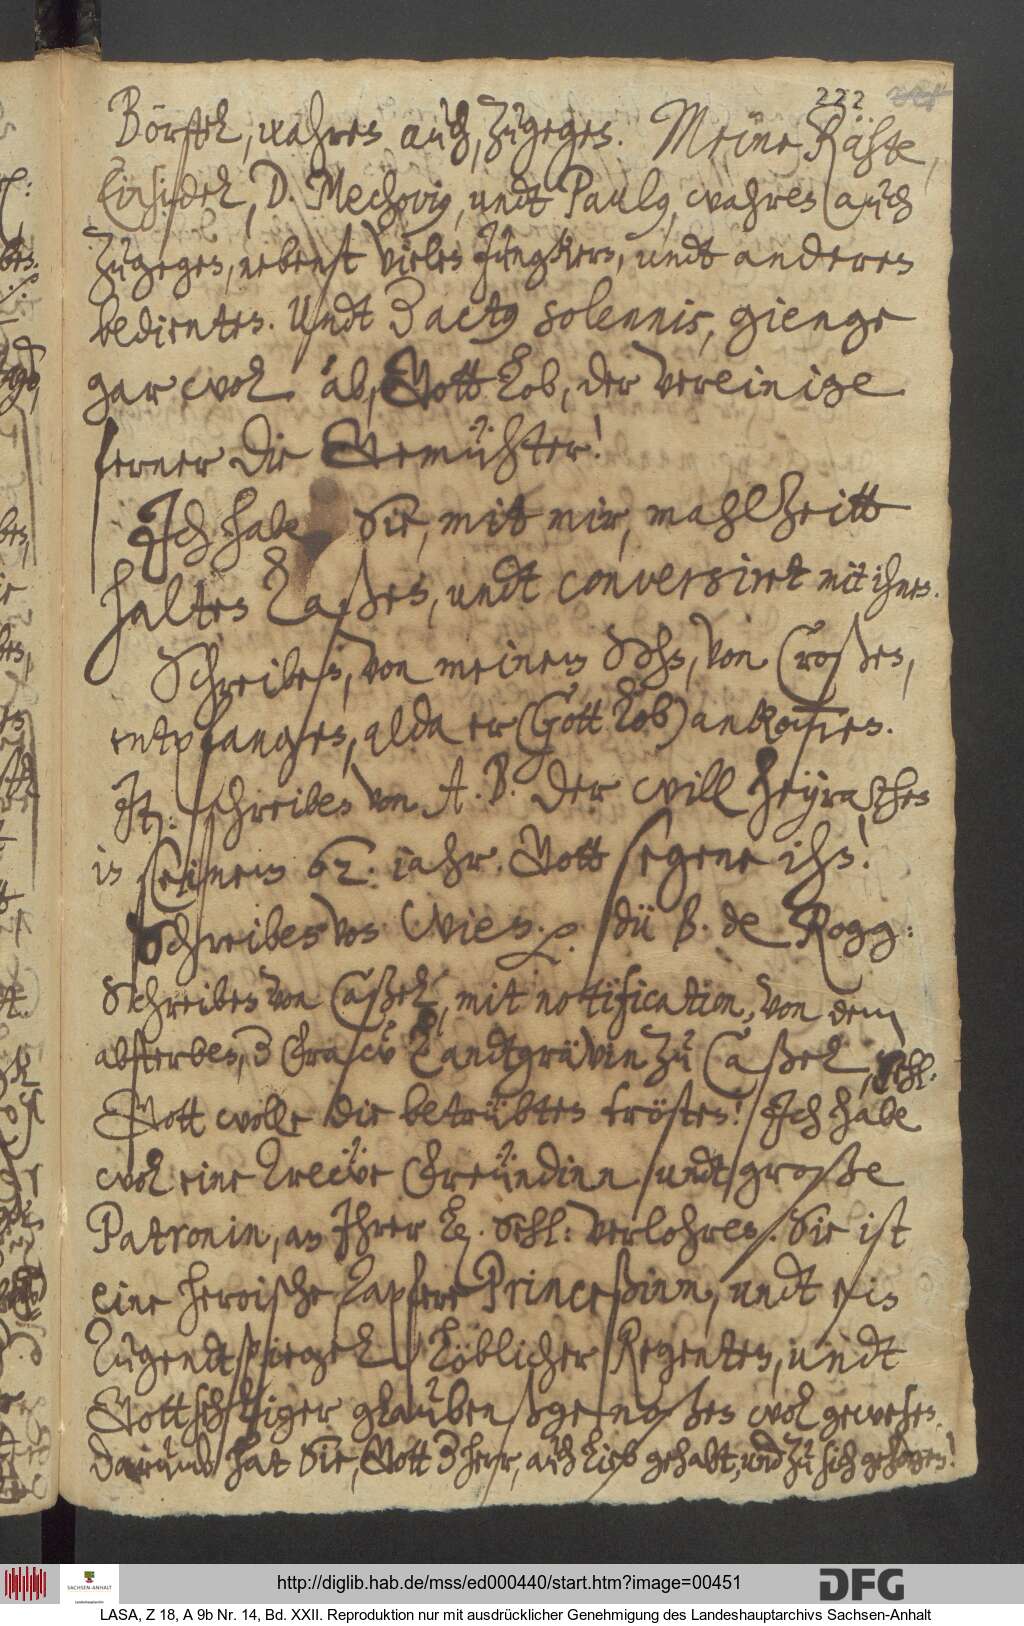 222
Börstel, wahren auch, zugegen. Meine Rähte,
Einsidel, D. Mechovius, undt Paulus, wahren auch
zugegen, nebenst vielen Jungkern, undt anderen
bedienten. Undt der actus solennis, gienge
gar wol ab, Gott lob, der vereinige
ferner die Gemühter!
Ich habe Sie, mit mir, mahlzeitt
halten laßen, undt conversiret mit ihnen.
Schreiben, von meinem Sohn, von Croßen,
entpfangen, alda er (Gott lob) ankommen.
It: schreiben von A. B. der will heyrathen
in Seinem 62. iahr. Gott segene ihn!
Schreiben von Wien. du B. de Rogg:
Schreiben von Caßel, mit notification, von dem
absterben, der Fraw Landtgrävin zu Caßel, Sehl.
Gott wolle die betrübten trösten! Ich habe
wol eine trewe Freündinn undt große
Patronin, an Ihrer L. Sehl: verlohren. Sie ist
eine heroische tapfere Princeßinn, undt ein
Tugendtspiegel löblicher Regenten, undt
Gottsehliger glaubenßgenoßen wol gewesen.
Darumb hat Sie, Gott der herr, auch lieb gehabt, und zu sich gezogen!
http://diglib.hab.de/mss/ed000440/start.htm?image=00451
SACHSEN-ANHALT
DFG
LASA, Z 18, A 9b Nr. 14, Bd. XXII. Reproduktion nur mit ausdrücklicher Genehmigung des Landeshauptarchivs Sachsen-Anhalt